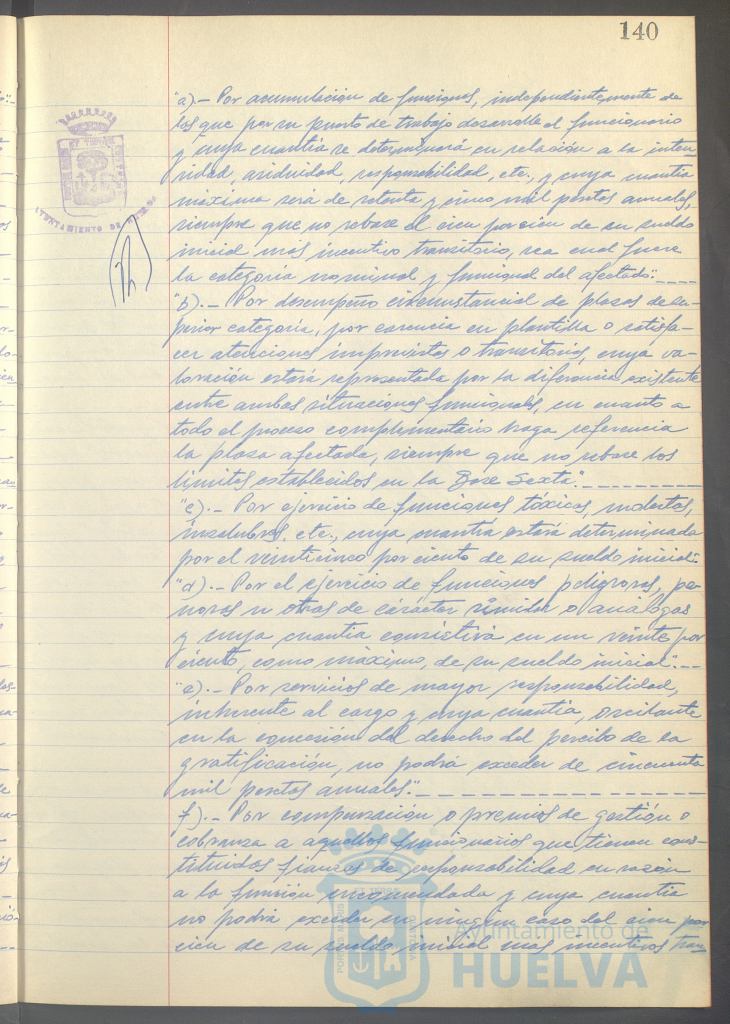 140
"a).- Por acumulación de funciones, independientemente de
los que por su puesto de trabajo desarrolle el funcionario
y cuya cuantía se determinará en relación a la inten-
sidad, asiduidad, responsabilidad, etc., y cuya cuantía
máxima será de setenta y cinco mil pesetas anuales,
siempre que no rebase el cien por cien de su sueldo
inicial más incentivo transitorio, sea cual fuere
la categoría nominal y funcional del afectado".----
"b).- Por desempeño circunstancial de plazas de su-
perior categoría, por carencia en plantilla o satisfa-
cer atenciones imprevistas o transitorias, cuya va-
loración estará representada por la diferencia existente
entre ambas situaciones funcionales, en cuanto a
todo el proceso complementario haga referencia
la plaza afectada, siempre que no rebase los
límites establecidos en la Base Sexta".--------
"c).- Por ejercicio de funciones tóxicas, molestas,
insalubres, etc., cuya cuantía estará determinada
por el veinticinco por ciento de su sueldo inicial".
"d).- Por el ejercicio de funciones peligrosas, pe-
nosas u otras de carácter similar o análogas
y cuya cuantía consistirá en un veinte por
ciento, como máximo, de su sueldo inicial".--
"e).- Por servicios de mayor responsabilidad,
inherente al cargo y cuya cuantía, oscilante
en la concesión del derecho del percibo de la
gratificación, no podrá exceder de cincuenta
mil pesetas anuales".----------------
f).- Por compensación o premios de gestión o
cobranza a aquellos funcionarios que tienen cons-
tituidas fianzas de responsabilidad en razón
a la función encomendada y cuya cuantía
no podrá exceder en ningún caso del cien por
cien de su sueldo inicial más incentivos tran
AYUNTAMIENTO DE HUELVA
Ayuntamiento de
HUELVA